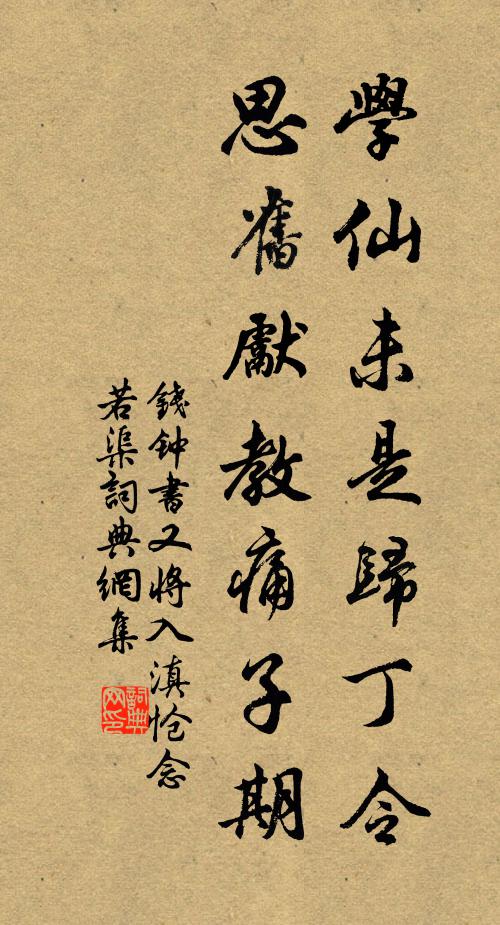 學仙未是歸丁令
思舊獻教痛子期
錢钟書又將入滇怆念
若渠詞典網集
詞典網印